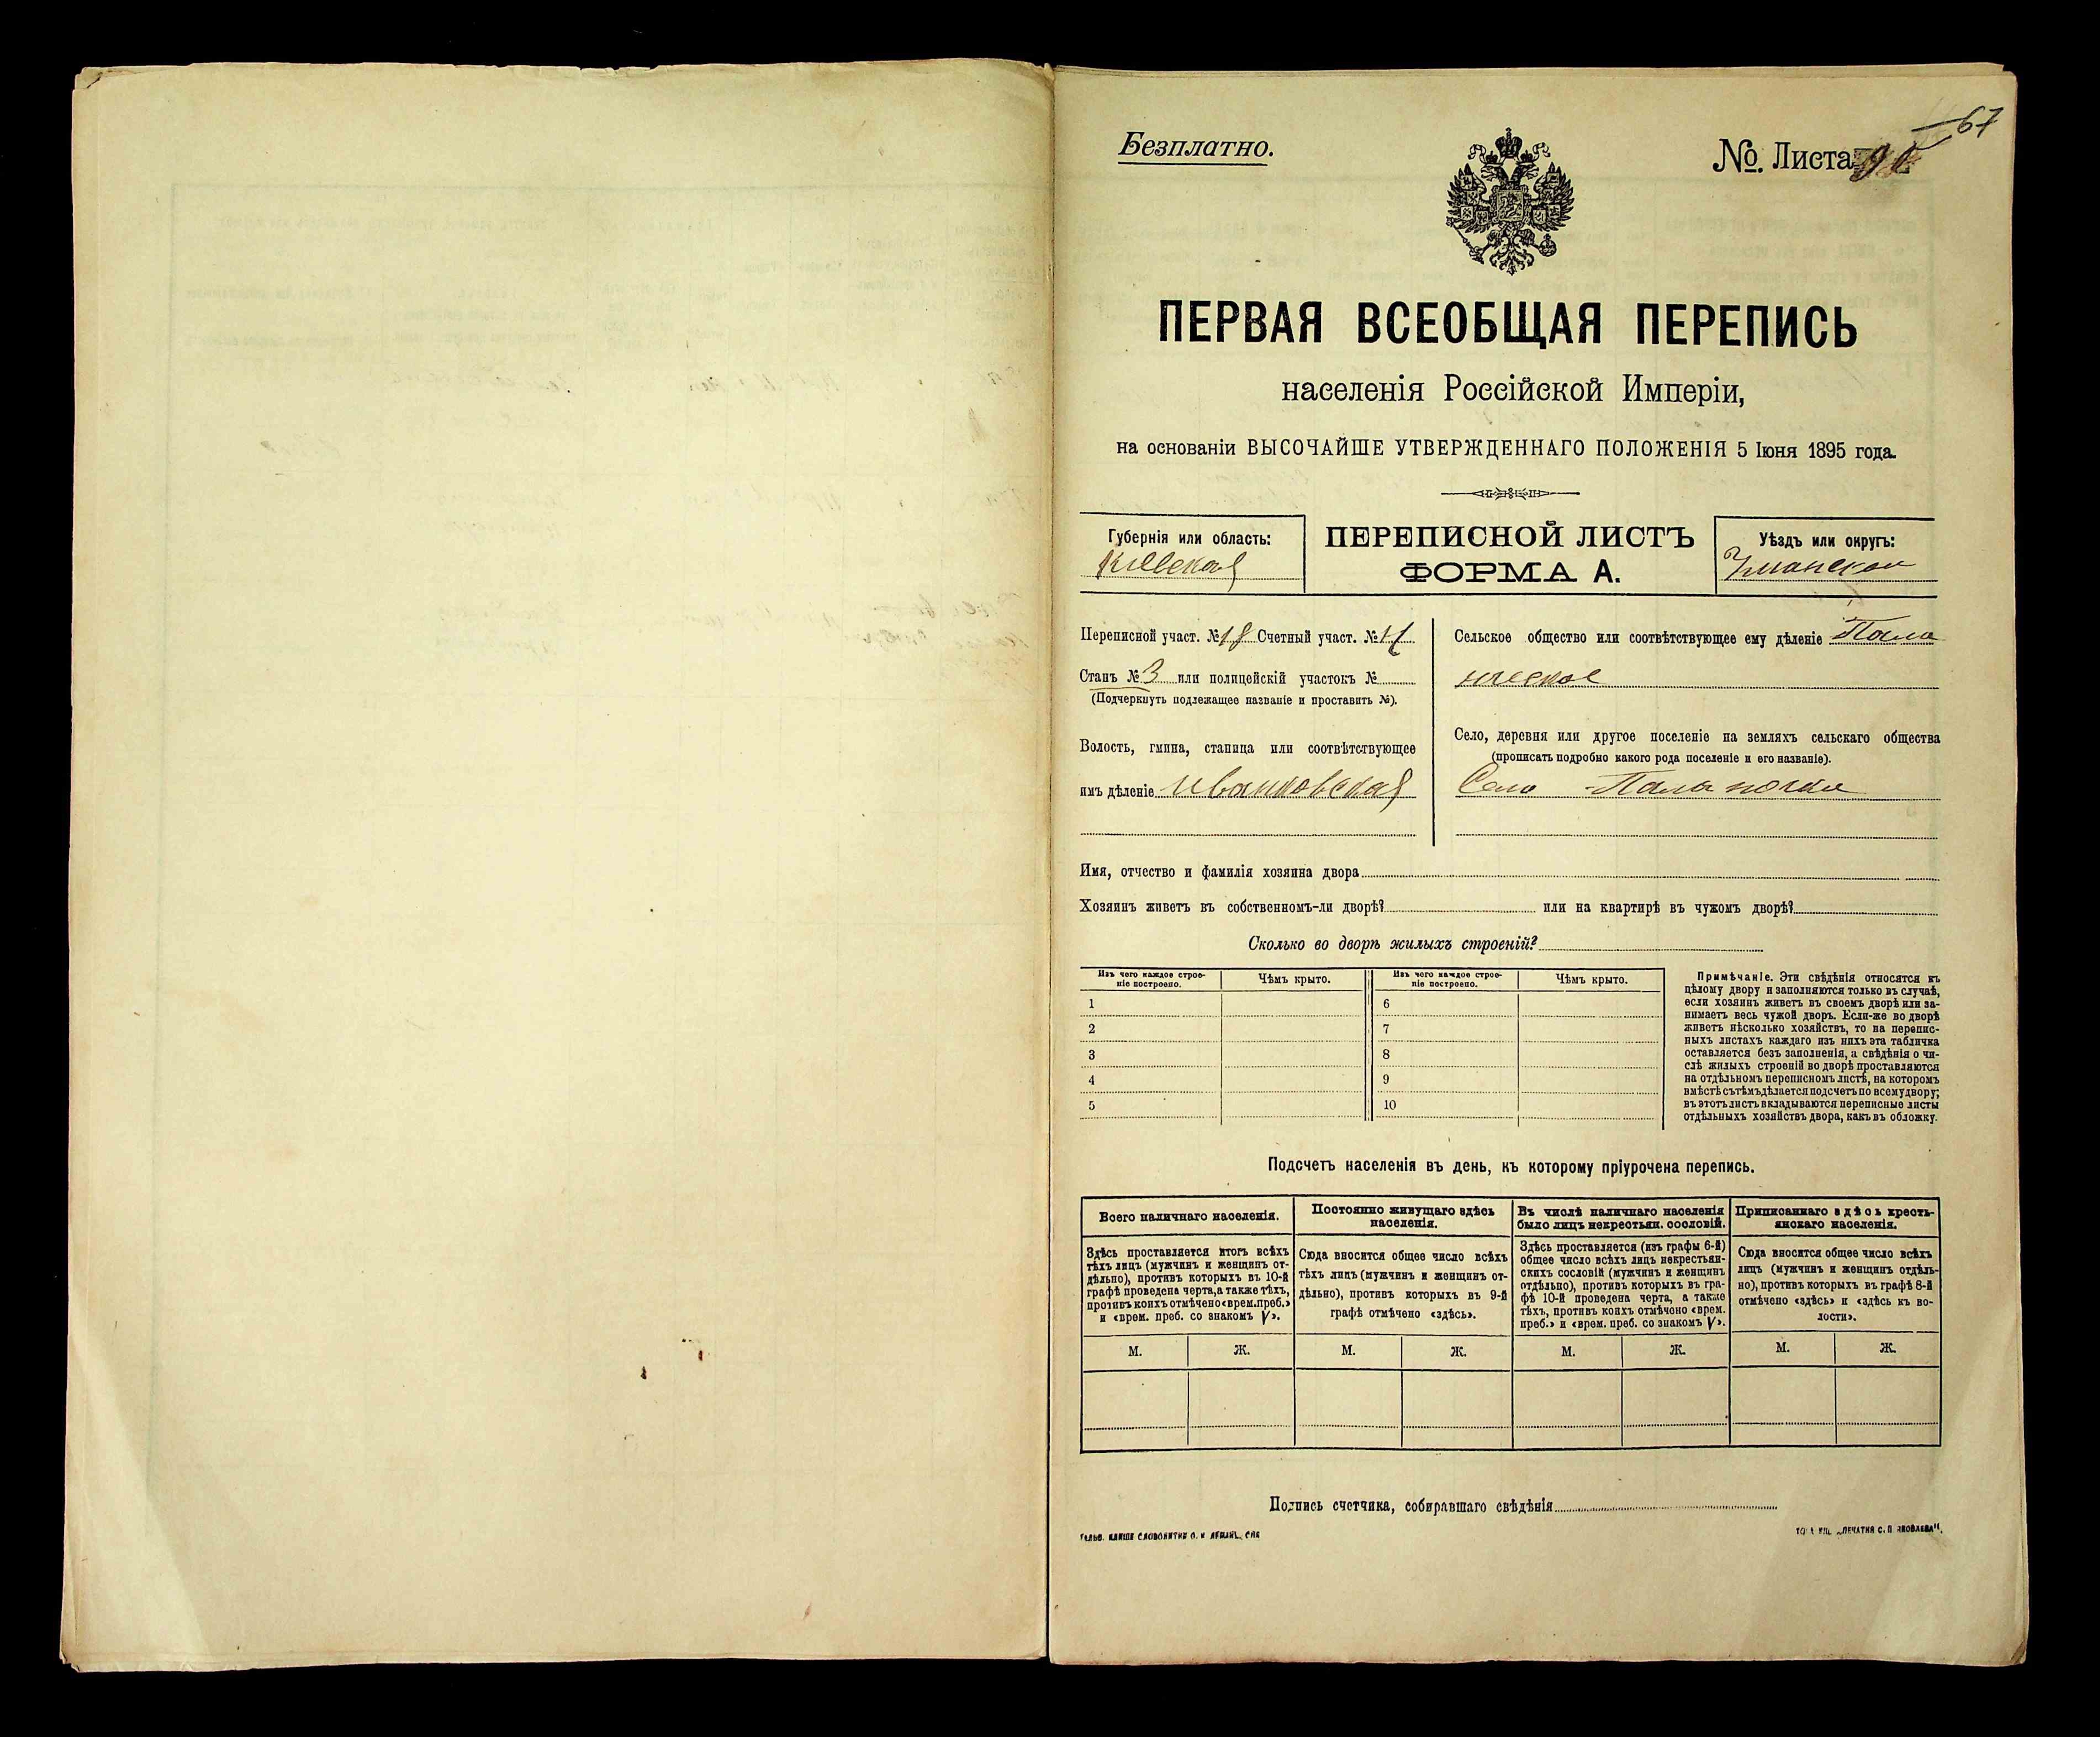 67
Безплатно.
№ Листа
ПЕРВАЯ ВСЕОБЩАЯ ПЕРЕПИСЬ
населенія Россійской Имперіи,
на основаніи ВЫСОЧАЙШЕ УТВЕРЖДЕННАГО ПОЛОЖЕНІЯ 5 Іюня 1895 года.
Губернія или область:
Кіевская
ПЕРЕПИСНОЙ ЛИСТЪ
ФОРМА А.
Уѣздъ или округъ:
Уманскій
Переписной участ. №18 Счетный участ. №
Станъ № 3 или полицейскій участокъ №
(Подчеркнуть подлежащее названіе и проставить №).
Волость, гмина, станица или соотвѣтствующее
имъ дѣленіе Иваньковская
Сельское общество или соотвѣтствующее ему дѣленіе Пала
нское
Село, деревня или другое поселеніе на земляхъ сельскаго общества
(прописать подробно какого рода поселеніе и его названіе).
Село Паланочка
Имя, отчество и фамилія хозяина двора
Хозяинъ живетъ въ собственномъ-ли дворѣ? или на квартирѣ въ чужомъ дворѣ?
Сколько во дворѣ жилыхъ строеній?
Изъ чего каждое строе-
ніе построено.
Чѣмъ крыто.
Изъ чего каждое строе-
ніе построено.
Чѣмъ крыто.
1 6
2 7
3 8
4 9
5 10
Примѣчаніе. Эти свѣдѣнія относятся къ
цѣлому двору и заполняются только въ случаѣ,
если хозяинъ живетъ въ своемъ дворѣ или за-
нимаетъ весь чужой дворъ. Если-же во дворѣ
живетъ нѣсколько хозяйствъ, то на перепис-
ныхъ листахъ каждаго изъ нихъ эта табличка
оставляется безъ заполненія, а свѣдѣнія о чи-
слѣ жилыхъ строеній во дворѣ проставляются
на отдѣльномъ переписномъ листѣ, на которомъ
вмѣстѣ съ тѣмъ дѣлается подсчетъ по всему двору;
въ этотъ листъ вкладываются переписные листы
отдѣльныхъ хозяйствъ двора, какъ въ обложку.
Подсчетъ населенія въ день, къ которому пріурочена перепись.
Всего наличнаго населенія.
Здѣсь проставляется итогъ всѣхъ
тѣхъ лицъ (мужчинъ и женщинъ от-
дѣльно), противъ которыхъ въ 10-й
графѣ проведена черта, а также тѣхъ,
противъ коихъ отмѣчено «врем. преб.»
и «врем. преб. со знакомъ V».
Постоянно живущаго здѣсь
населенія.
Сюда вносится общее число всѣхъ
тѣхъ лицъ (мужчинъ и женщинъ от-
дѣльно), противъ которыхъ въ 9-й
графѣ отмѣчено «здѣсь».
Въ числѣ наличнаго населенія
было лицъ некрестьян. сословій.
Здѣсь проставляется (изъ графы 6-й)
общее число всѣхъ лицъ некрестьян-
скихъ сословій (мужчинъ и женщинъ
отдѣльно), противъ которыхъ въ гра-
фѣ 10-й проведена черта, а также
тѣхъ, противъ коихъ отмѣчено «врем.
преб.» и «врем. преб. со знакомъ V».
Приписаннаго здѣсь кресть-
янскаго населенія.
Сюда вносится общее число всѣхъ
лицъ (мужчинъ и женщинъ отдѣль-
но), противъ которыхъ въ графѣ 8-й
отмѣчено «здѣсь» и «здѣсь къ во-
лости».
М. Ж. М. Ж. М. Ж. М. Ж.
Подпись счетчика, собиравшаго свѣдѣнія